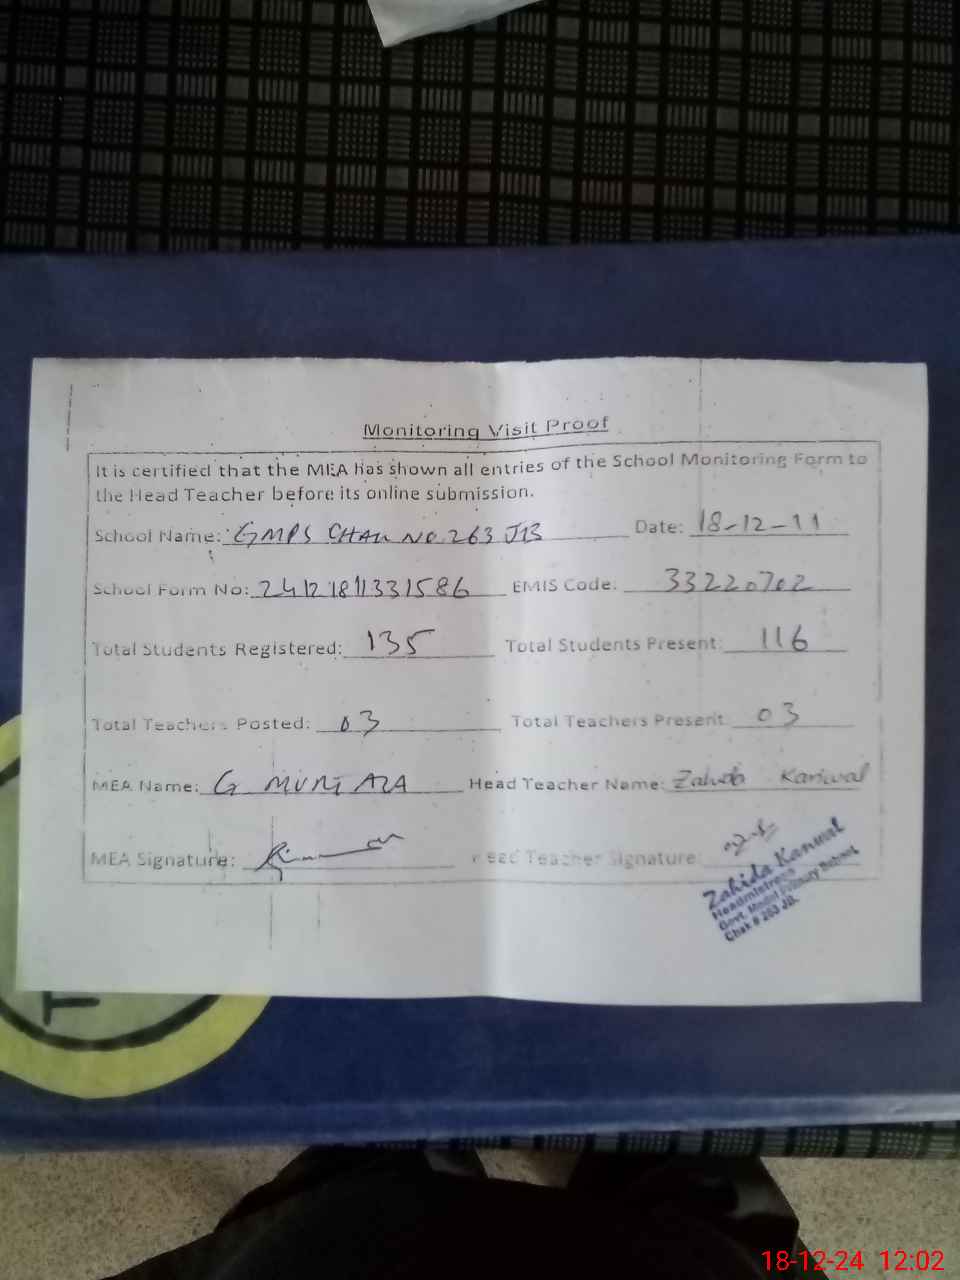 Monitoring Visit Proof
It is certified that the MEA has shown all entries of the School Monitoring Form to
the Head Teacher before its online submission.
School Name: GMPS CHAK NO. 263 JB Date: 18-12-11
School Form No: 24121811331586 EMIS Code: 33220702
Total Students Registered: 135 Total Students Present: 116
Total Teachers Posted: 03 Total Teachers Present: 03
MEA Name: G Head Teacher Name: Zahida Kanwal
MEA Signature: Head Teacher Signature:
Zahida Kanwal
Headmistress
Govt. Model Primary School,
Chak # 263 JB.
18-12-24 12:02